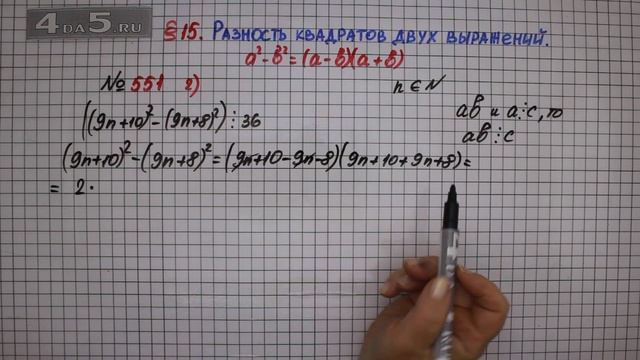 4DA5.RU
§15. Разность квадратов двух выражений.
a²-b²=(a-b)(a+b)
№551 г)
n∈N
((9n+10)²-(9n+8)²)⋮36
ab и a⋮c, то
ab⋮c
(9n+10)²-(9n+8)²=(9n+10-9n-8)(9n+10+9n+8)=
= 2·